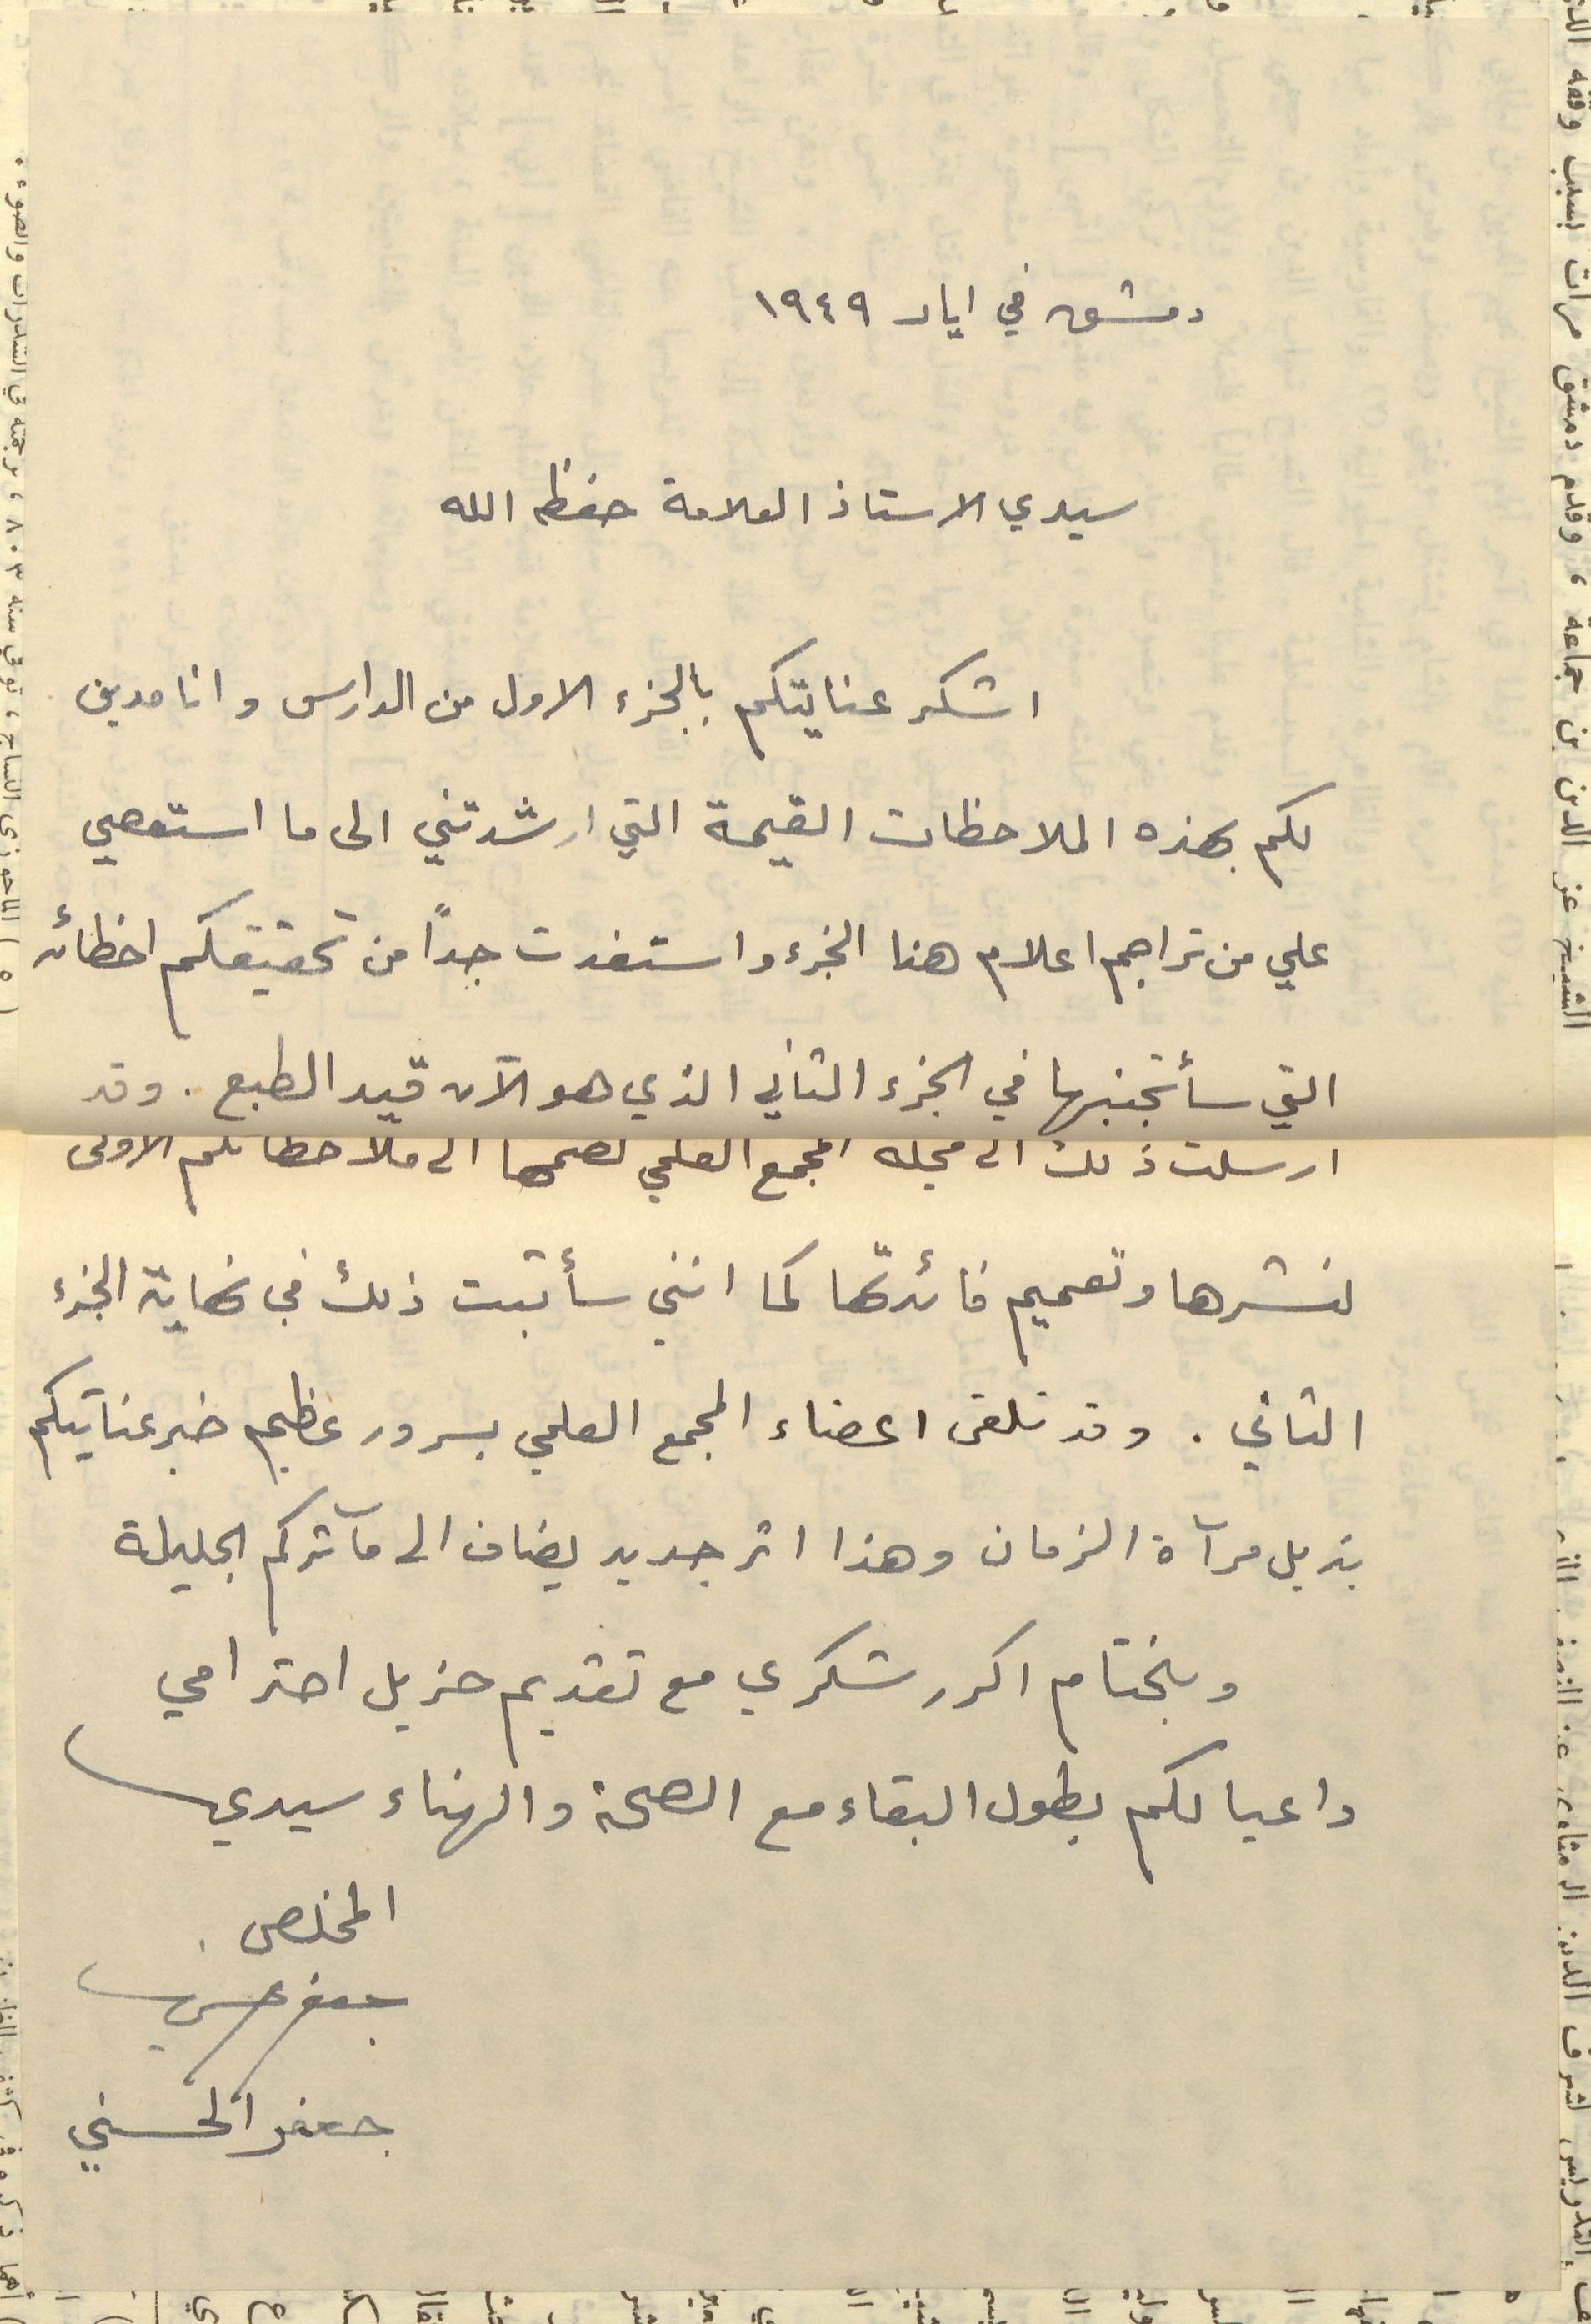 دمشق في ايار ١٩٤٩
سيدي الاستاذ العلامة حفظه الله
اشكر عنايتكم بالجزء الاول من الدارس وانا مدين
لكم بهذه الملاحظات القيمة التي ارشدتني الى ما استعصي
علي من تراجم اعلام هذا الجزء واستفدت جداً من تحقيقكم اخطائه
التي سأتجنبها في الجزء الثاني الذي هو الآن قيد الطبع . وقد
ارسلت ذلك الى مجلة المجمع العلمي لضمها الى ملاحظاتكم الاولى
لنشرها وتعميم فائدتها كما انني سأثبت ذلك في نهاية الجزء
الثاني . وقد تلقى اعضاء المجمع العلمي بسرور عظيم خبر عنايتكم
بذيل مرآة الزمان وهذا اثر جديد يضاف الى مآثركم الجليلة
وبلختام اكرر شكري مع تقديم جزيل احترامي
داعيا لكم بطول البقاء مع الصحة والهناء سيدي
المخلص
جعفر حسني
جعفر الحسني
الشيخ عز الدين بن جماعة ، وقدم دمشق مرات بسبب وقفه